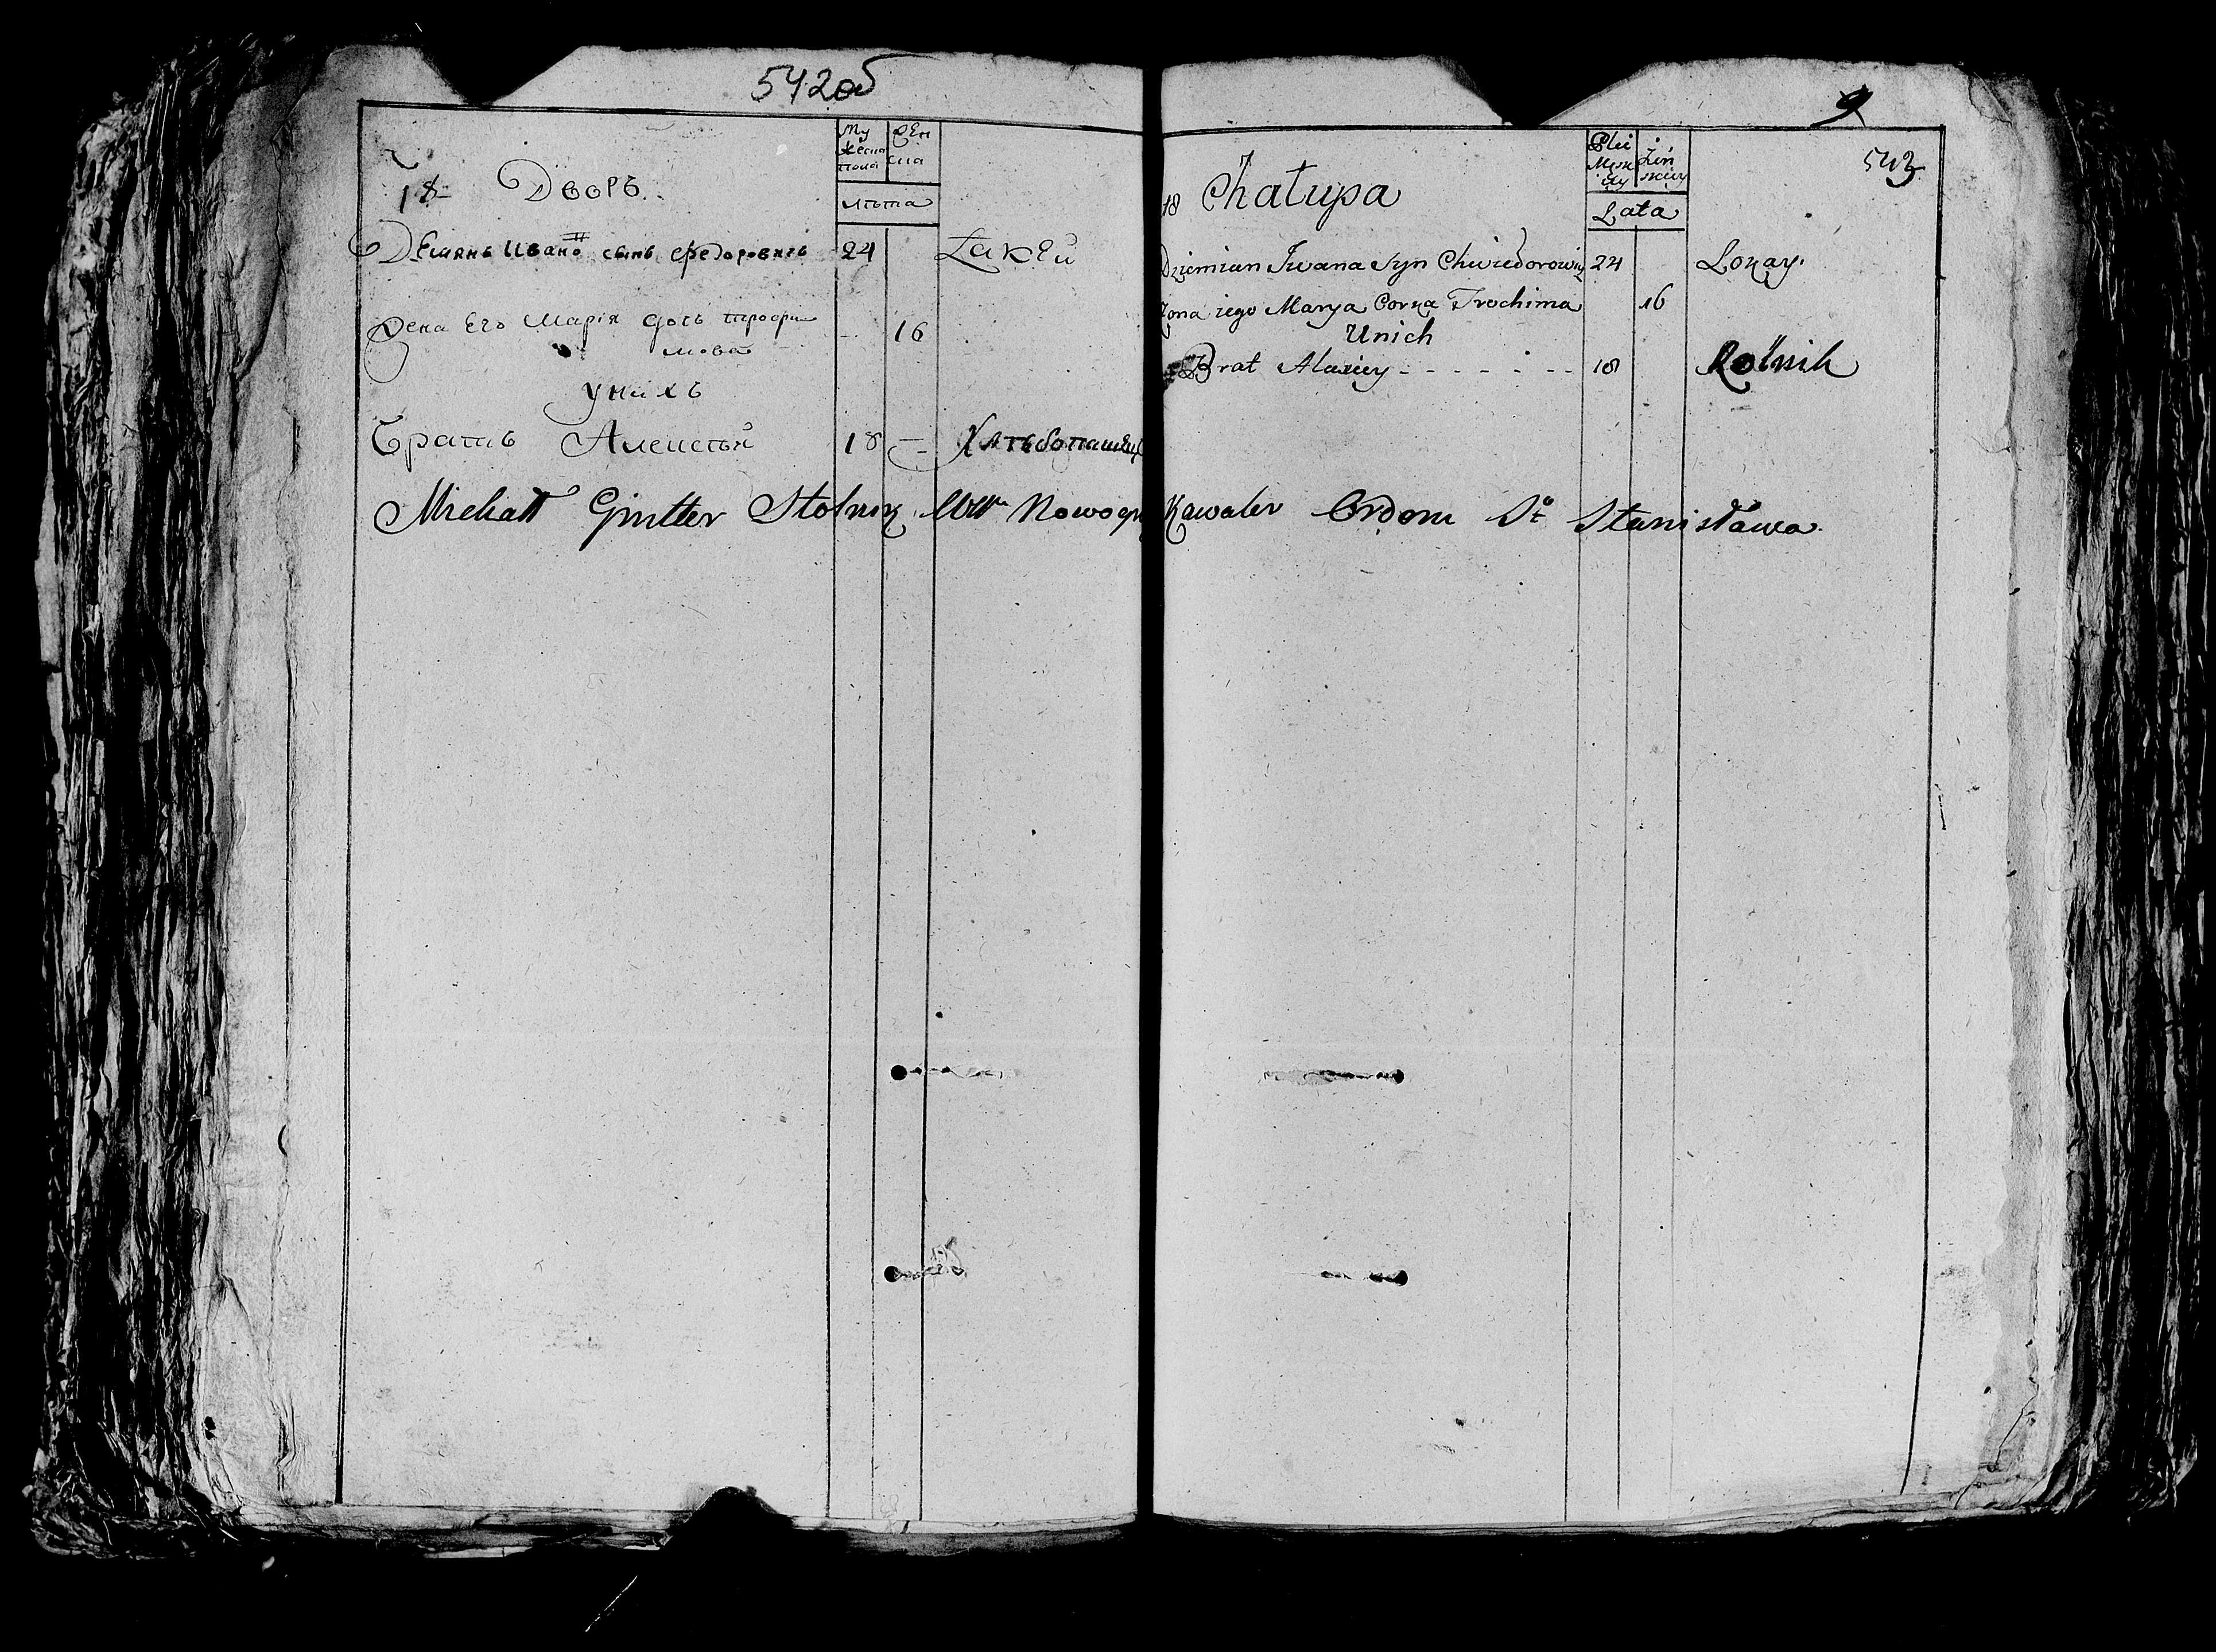 542об
Мужеска пола
Женска
18 Дворъ
лѣта
Демянъ Ивановъ сынъ Федоровичъ 24 Лакей
Жена Его Марія дочь Трофимова 16
У нихъ
Братъ Алексѣй 18 — Хлѣбопашец
Michałł Gintter Stolnik Wttwa Nowogr Kawaler Orderu St Stanisława.
9
543
Płci Męskiey
Żeńskiey
18 Chałupa
Lata
Dziemian Iwana Syn Chwiedorowicz 24 Lokay.
Żona iego Marya Corka Trochima 16
U nich
Brat Alaxiey - - - - - - 18 Rolnik